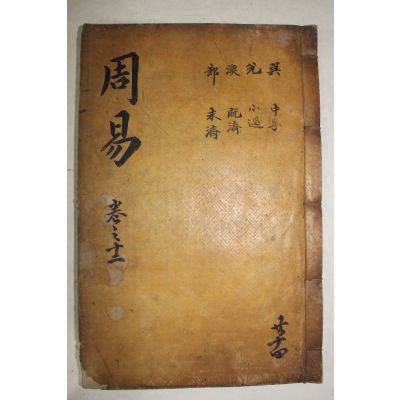 周易
卷之十二
巽 中孚
兌 小過
渙 既濟
節 未濟
共十四